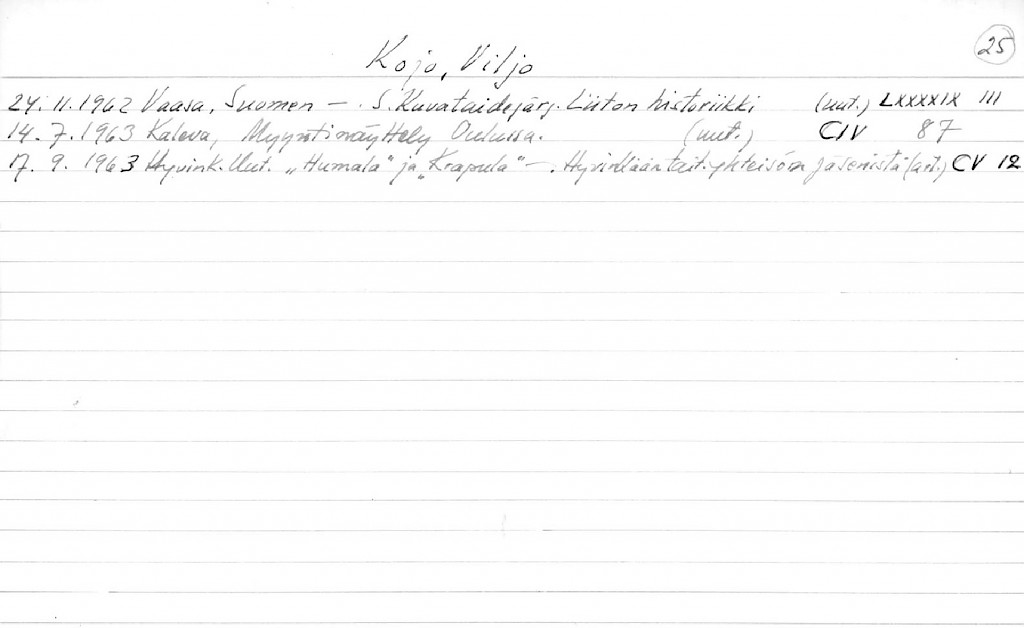 25
Kojo, Viljo
24. 11. 1962 Vaasa, Suomen — . S. Kuvataidejärj. Liiton historiikki (uut.) LXXXXIX 111
14. 7. 1963 Kaleva, Myyntinäyttely Oulussa. (uut.) CIV 87
17. 9. 1963 Hyvink. Uut. „Humala" ja „Krapula" — . Hyvinkään tait.yhteisön jäsenistä (art.) CV 12